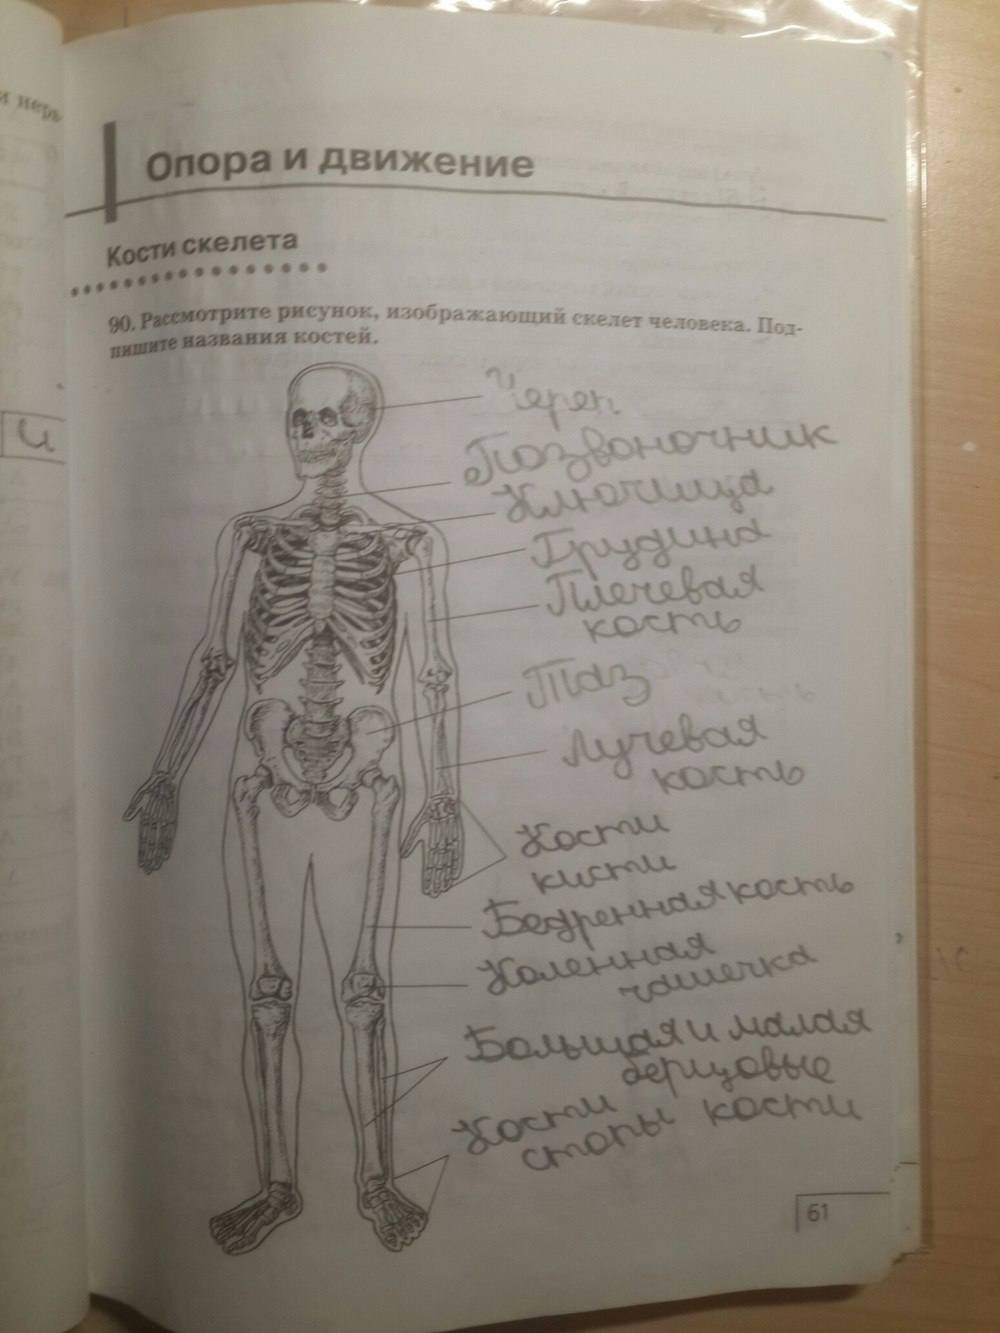 и нерв-
и
Опора и движение
Кости скелета
90. Рассмотрите рисунок, изображающий скелет человека. Под-
пишите названия костей.
Череп
Позвоночник
Ключица
Грудина
Плечевая
кость
Таз
Лучевая
кость
Кости
кисти
Бедренная кость
Коленная
чашечка
Большая и малая
берцовые
кости
Кости
стопы
61